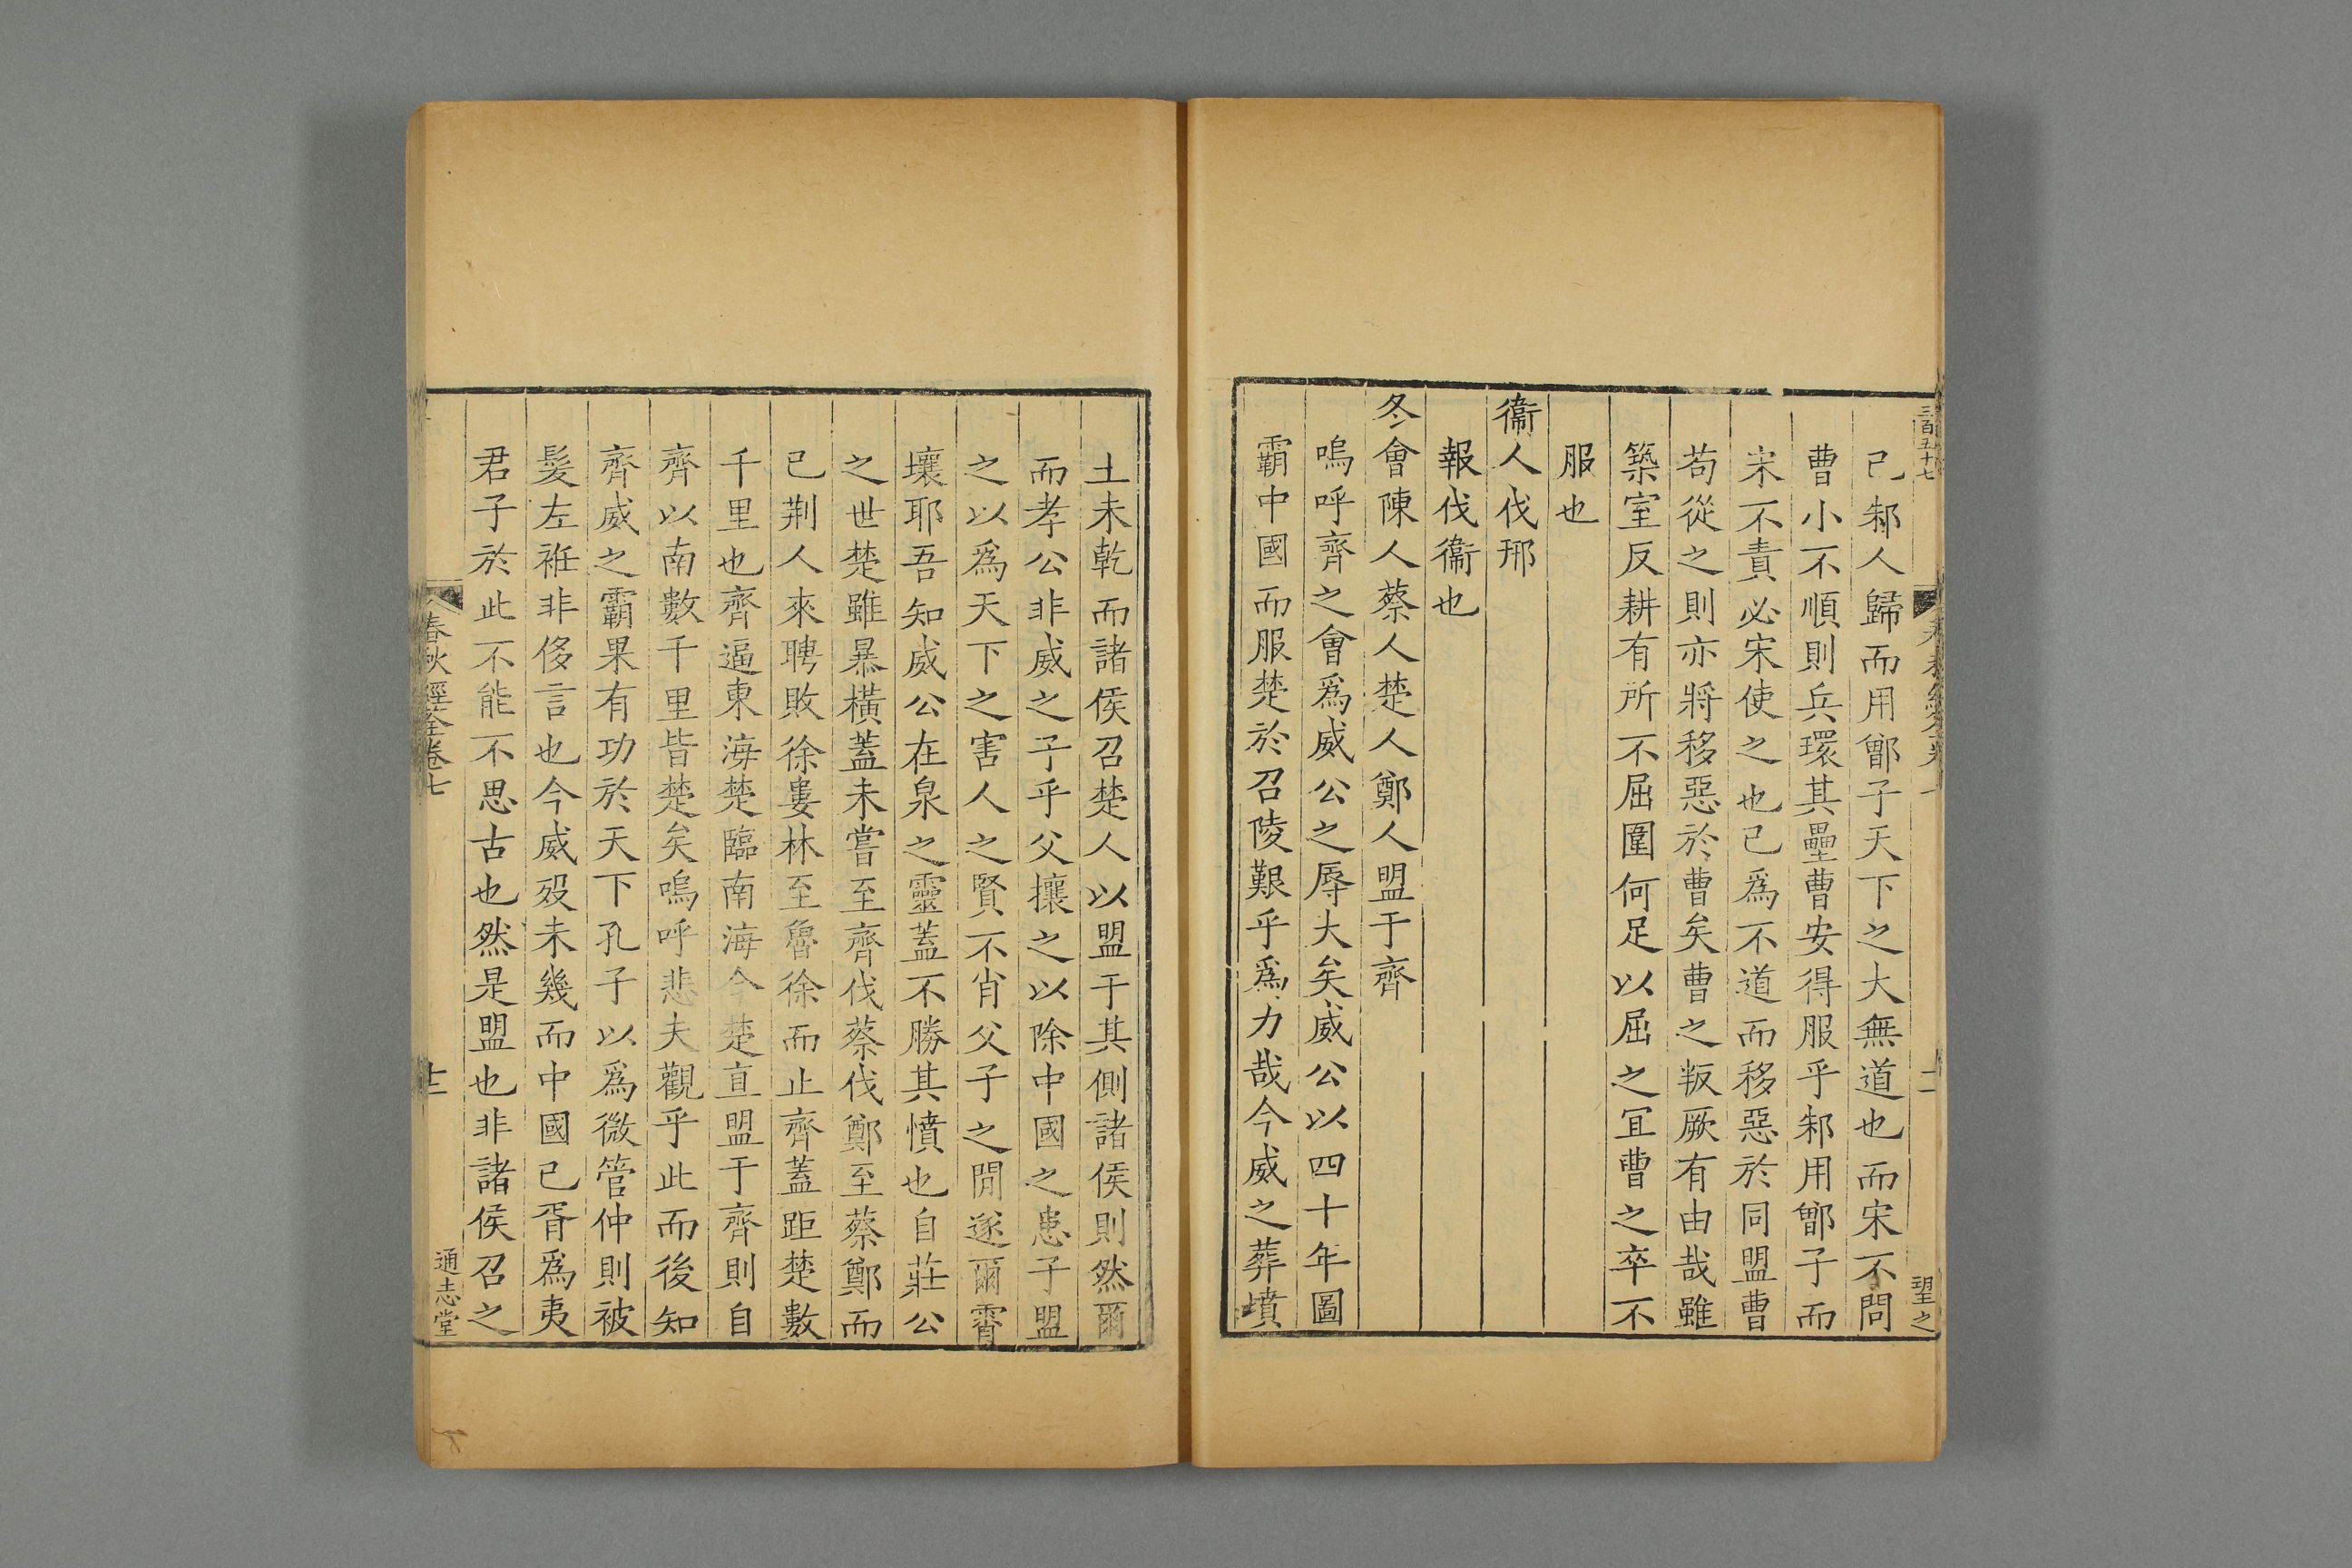 三百五十七
望之
己邾人歸而用鄫子天下之大無道也而宋不問
曹小不順則兵環其壘曹安得服乎邾用鄫子而
宋不責必宋使之也己爲不道而移惡於同盟曹
苟從之則亦將移惡於曹矣曹之叛厥有由哉雖
築室反耕有所不屈圍何足以屈之宜曹之卒不
服也
衞人伐邢
報伐衞也
冬會陳人蔡人楚人鄭人盟于齊
嗚呼齊之會爲威公之辱大矣威公以四十年圖
霸中國而服楚於召陵艱乎爲力哉今威之葬墳
土未乾而諸侯召楚人以盟于其側諸侯則然爾
而孝公非威之子乎父攘之以除中國之患子盟
之以爲天下之害人之賢不肖父子之閒遂爾霄
壤耶吾知威公在泉之靈蓋不勝其憤也自莊公
之世楚雖暴橫蓋未嘗至齊伐蔡伐鄭至蔡鄭而
已荆人來聘敗徐婁林至魯徐而止齊蓋距楚數
千里也齊逼東海楚臨南海今楚直盟于齊則自
齊以南數千里皆楚矣嗚呼悲夫觀乎此而後知
齊威之霸果有功於天下孔子以爲微管仲則被
髮左衽非侈言也今威歿未幾而中國已胥爲夷
君子於此不能不思古也然是盟也非諸侯召之
春秋經筌卷七
十二
通志堂